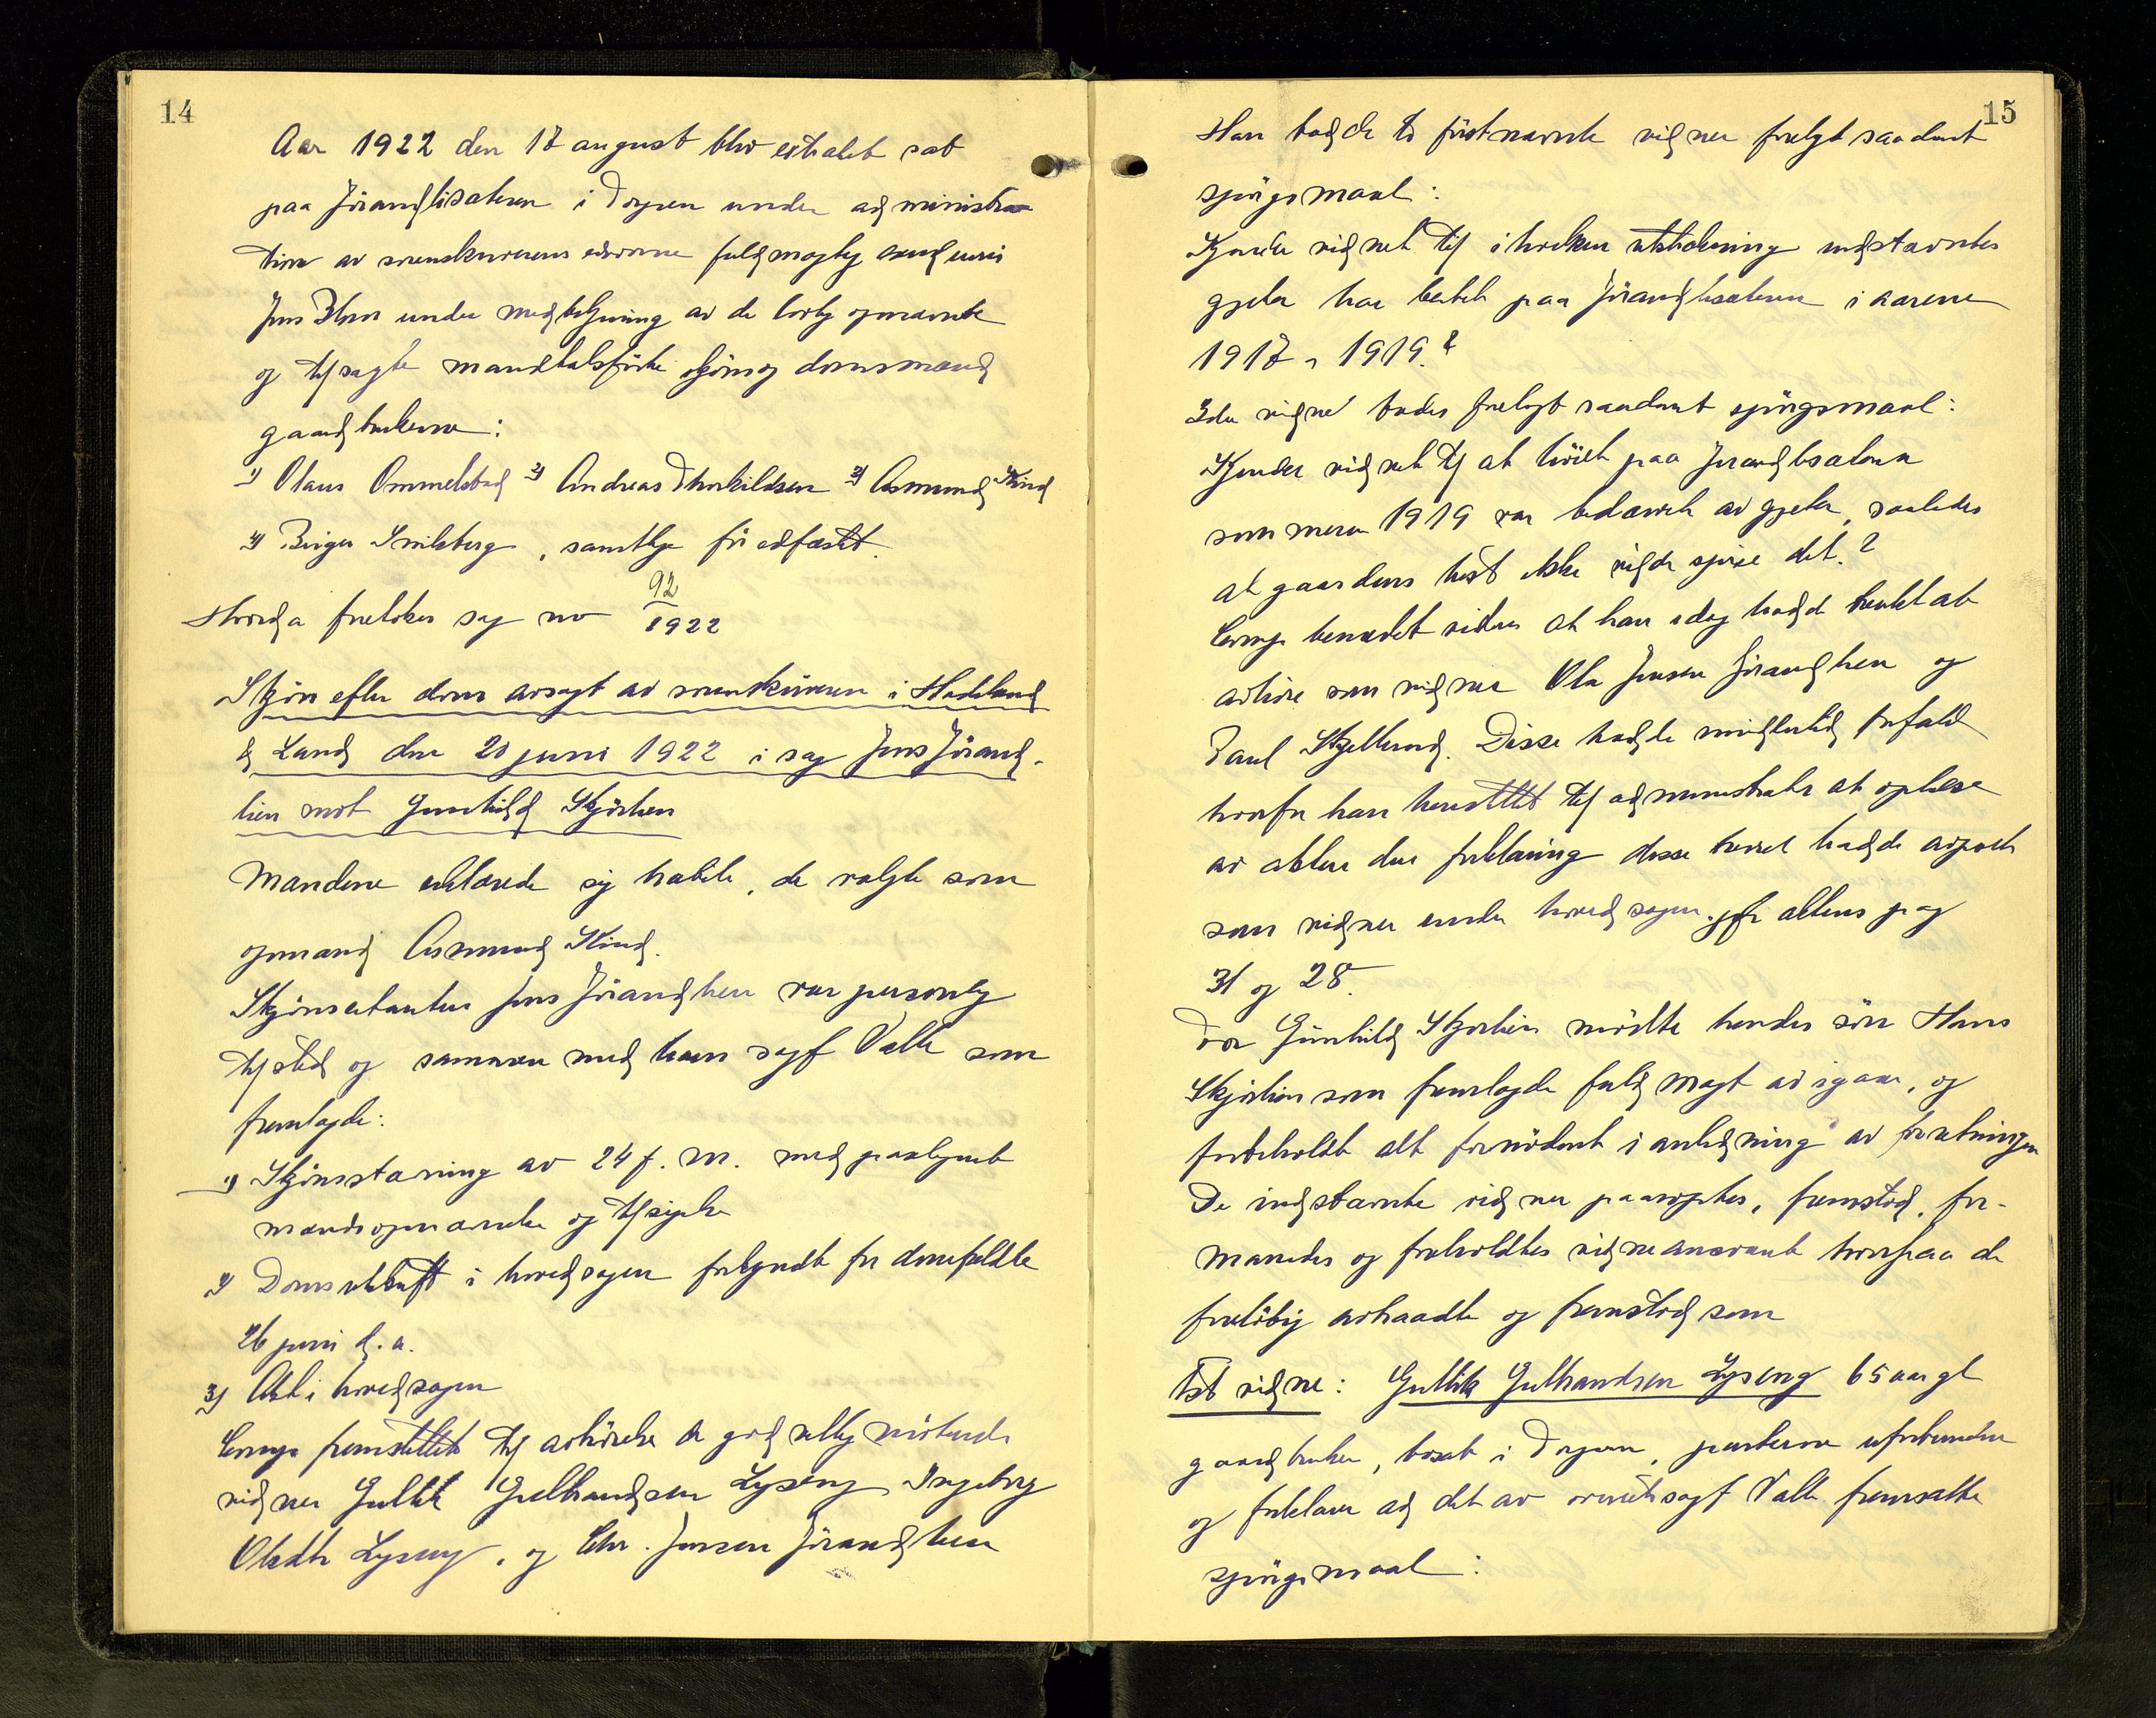 14
Aar 1922 den 17 august blev extraret sat
paa Jörandlisæteren i Torpen under administra
tion av sorenskriverens edsvorne fuldmægtig cand juris
Jens Blom under medbetjening av de lovlig opnævnte
og tilsagte mandtalsförte skjöns og domsmænd
gaardbrukerne:
1) Olaus Ommelstad 2) Andreas Thorkildsen 3) Asmund Skind
4) Birger Smilsberg, samtlige för edfæstet.
Hvorda foretokes sag no 92/1922
Skjön efter dom avsagt av sorenskriveren i Hadeland
& Land den 20 juni 1922 i sag Jens Jörand-
lien mot Gunhild Skjölien
Mændene erklærede sig habile, de valgte som
opmand Asmund Skind.
Skjönscitanten Jens Jörandlien var personlig
tilsted og sammen med ham sagf Valle som
fremlagde:
1) Skjönsstævning av 24 f. m. med paategnet
mændsopnævnelse og tilsigelse
2) Domsutskrift i hovedsagen forkyndt for domfældte
26 juni d. a.
3) Akt i hovedsagen
Comp. fremstillet til avhörelse de godvillig mötende
vidner Gullik Gulbrandsen Lyseng Ingeborg
Olsdtr Lyseng, og Chr. Jensen Jörandlien
15
Han bad de to förstnævnte vidner forelagt saadant
spörgsmaal:
Kjender vidnet til i hvilken utstrækning indstævntes
gjeter har beitet paa Jörandlisæteren i aarene
1917 - 1919?
3die vidne bedes forelagt saadant spörgsmaal:
Kjender vidnet til at höiet paa Jörandlisæteren
sommeren 1919 var bedærvet av gjeter, saaledes
at gaardens hest ikke vilde spise det?
Comp. bemerket videre at han idag hadde tænkt at
avhöre som vidner Ole Jensen Jörandlien og
Paul Skjellerud. Disse hadde imidlertid forfald
hvorfor han henstillet til administrator at oplæse
av akten den forklaring disse hadde avgivet
som vidner under hovedsagen. jfr aktens pag
31 og 28.
For Gunhild Skjölien mödte hendes sön Hans
Skjölien som fremlagde fuldmagt av igaar, og
forbeholdt alt fornödent i anledning av forretningen
De indstævnte vidner paaroptes, fremstod, for-
manedes og foreholdtes vidneansvaret hvorpaa de
foreløbig avtraadte og fremstod som
1st vidne: Gullik Gulbrandsen Lyseng 65 aar gl
gaardbruker, bosat i Torpen, parterne uforbunden
og forklarer ad det av overretssagf Valle fremsatte
spörgsmaal: